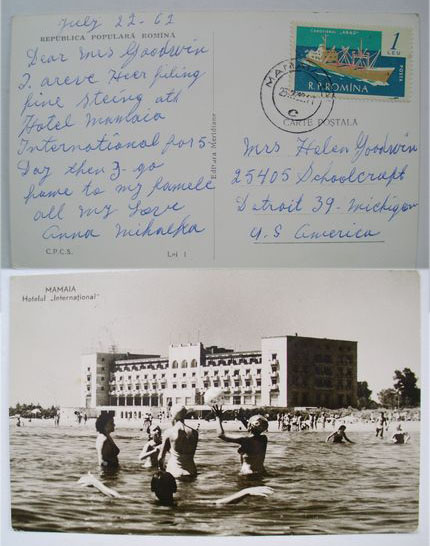 July 22-62
REPUBLICA POPULARĂ ROMÎNĂ
Dear Mrs Goodwin
I areve Heer filing
fine steing ath
Hotel Mamaia
International for 5-
Day then I go
home to my famele
all my Love
Anna Mihalka
C.P.C.S.
Lei 1
Editura Meridiane
CARGOUL "ARAD"
1
LEU
POSTA
R.P.ROMÎNA
CARTE POSTALA
Mrs Helen Goodwin
25405 Schoolcraft
Detroit 39. Michigan
U.S America
MAMAIA
Hotelul „Internațional"